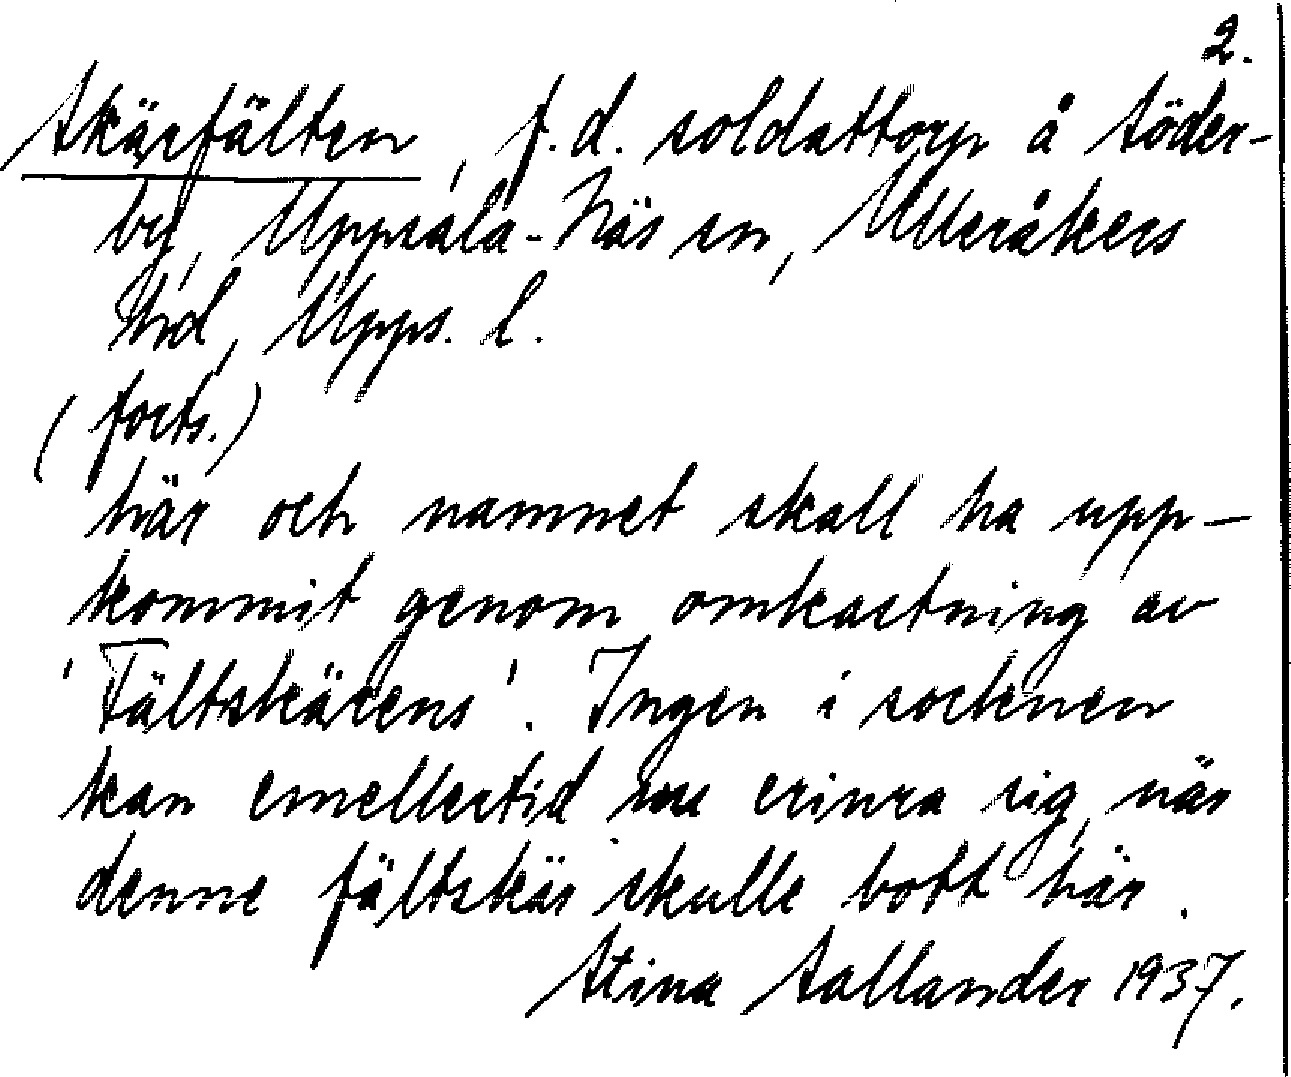 2.
Skärfälten, f.d. soldattorp å Söder-
by, Uppsala-Näs sn, Ulleråkers
hd, Upps. l.
(forts.)
här och namnet skall ha upp-
kommit genom omkastning av
'Fältskärens'. Ingen i socknen
kan emellertid nu erinra sig, när
denne fältskär skulle bott här.
Stina Sallander 1937.